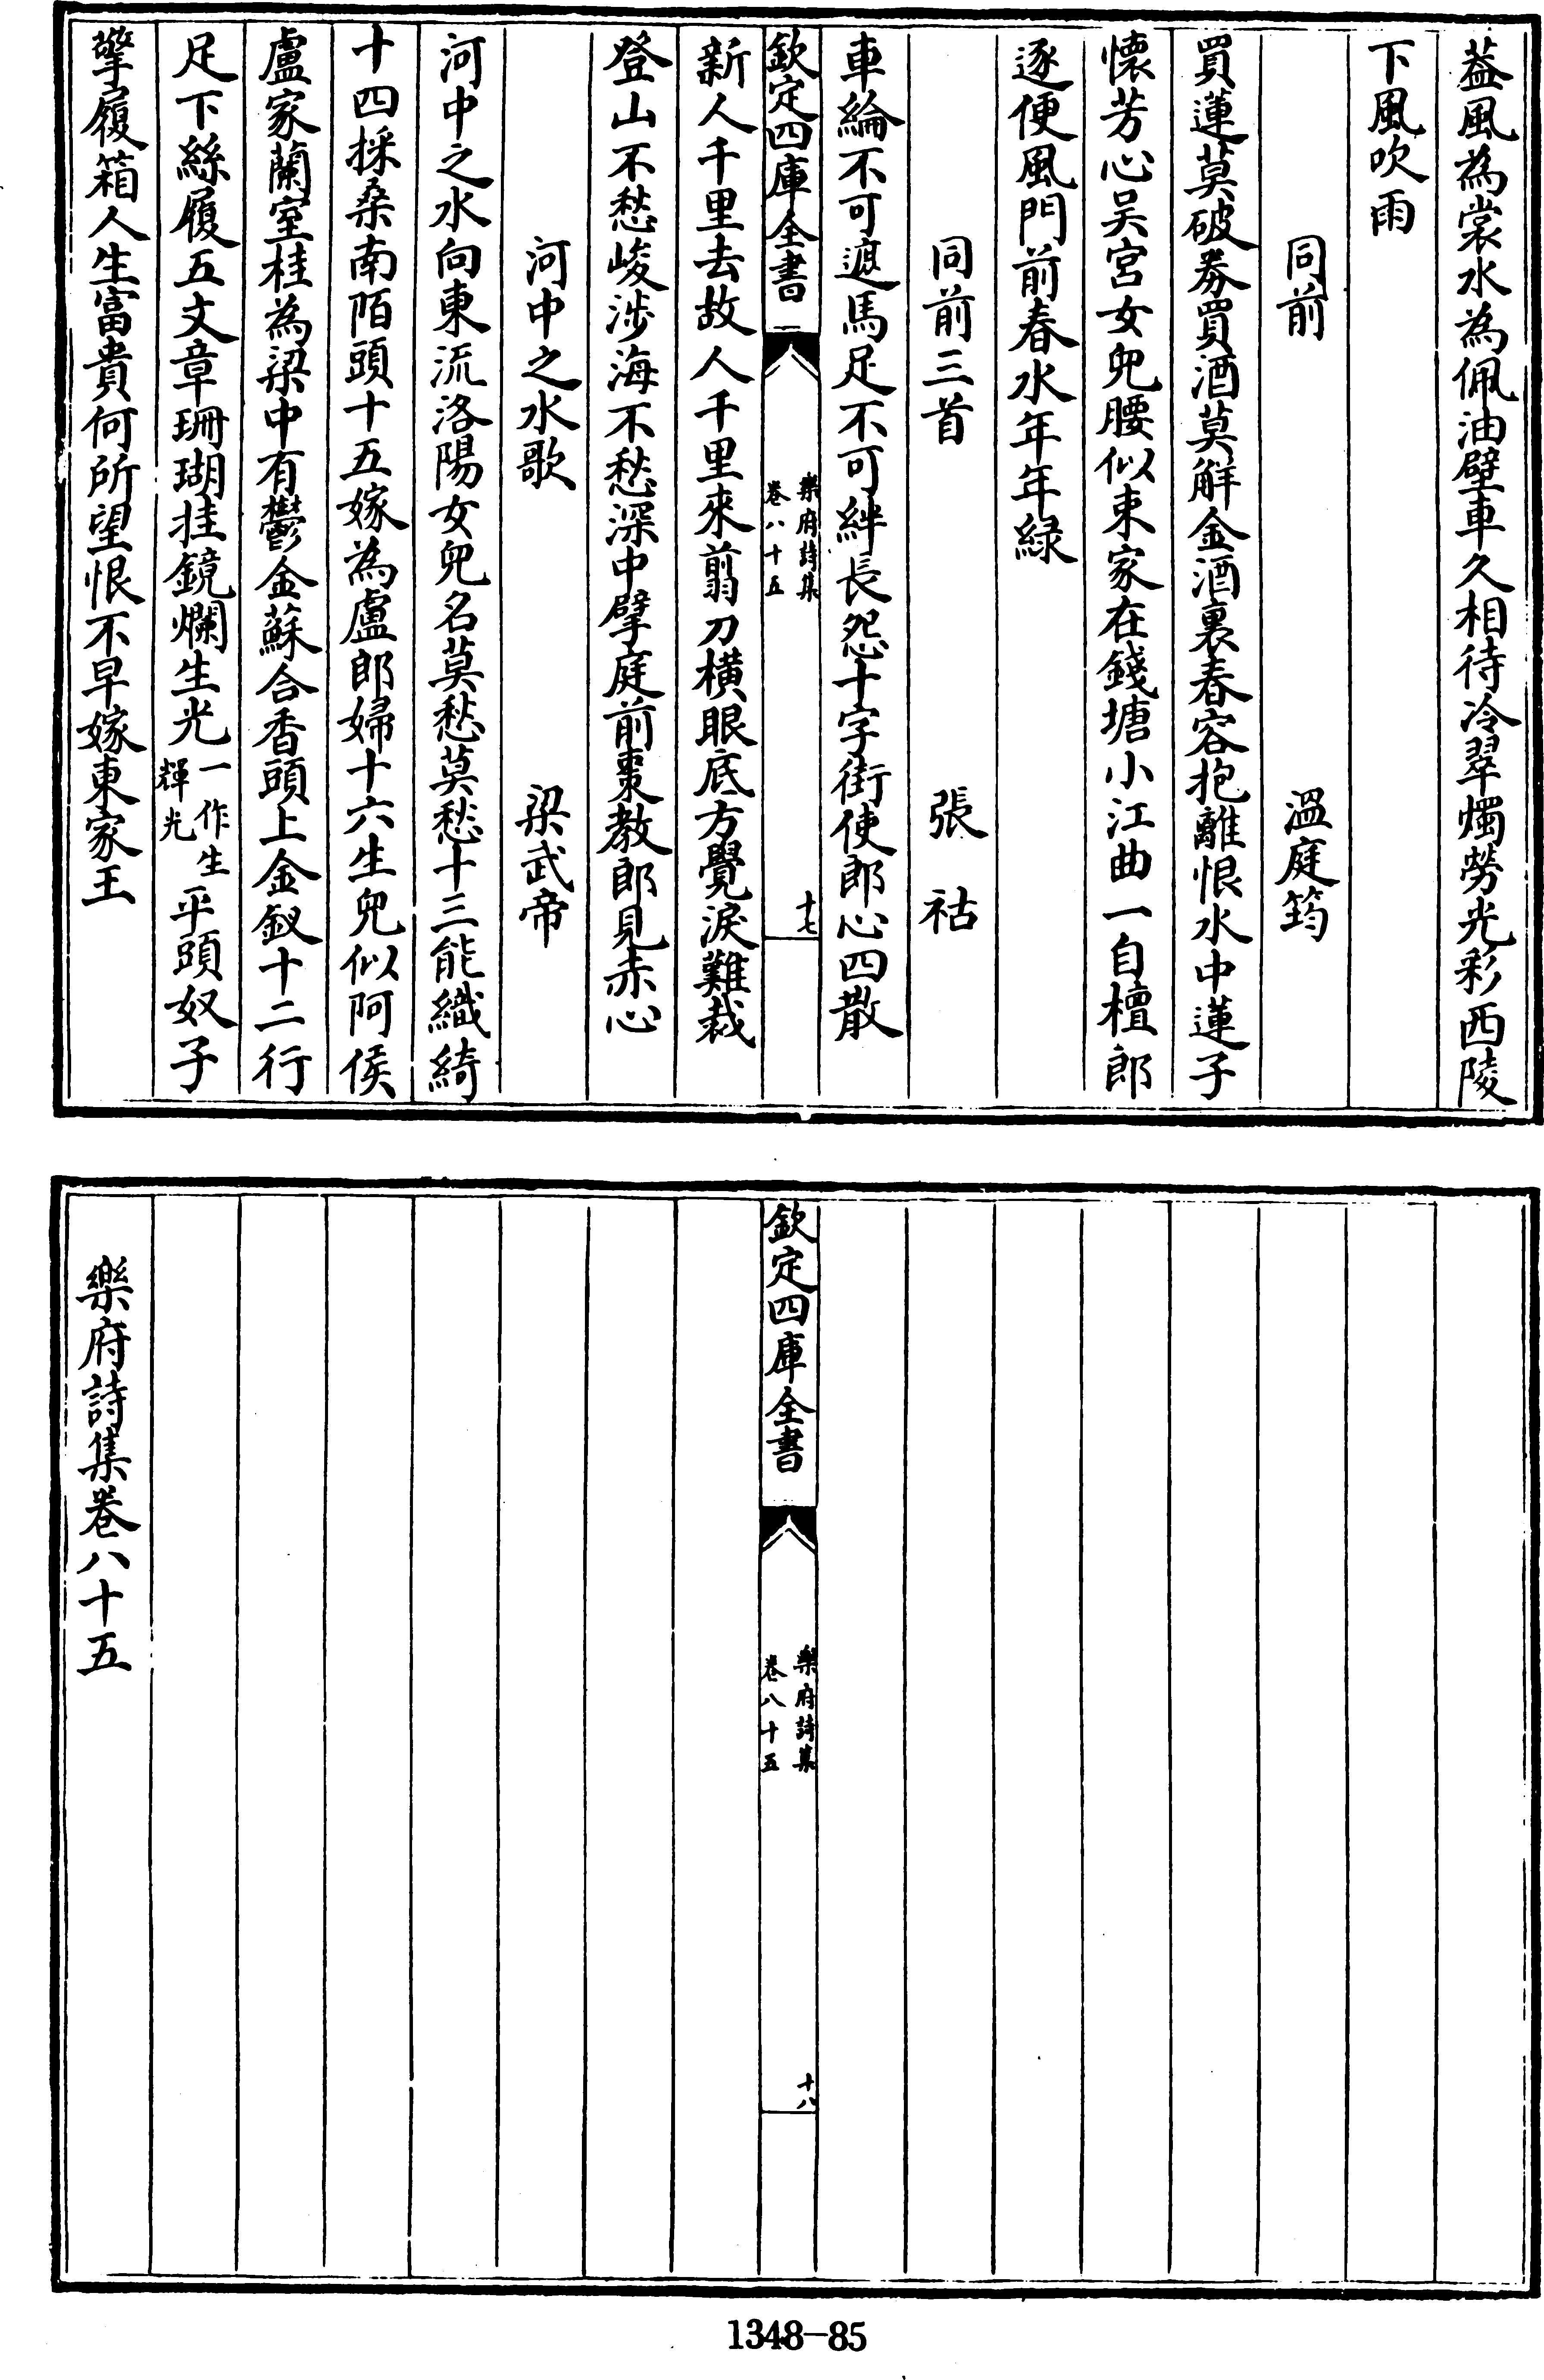 葢風為裳水為佩油壁車久相待冷翠燭勞光彩西陵
下風吹雨
同前 溫庭筠
買蓮莫破劵買酒莫解金酒裏春容抱離恨水中蓮子
懷芳心吳宮女兒腰似束家在錢塘小江曲一自檀郎
逐便風門前春水年年緑
同前三首 張祜
車輪不可遮馬足不可絆長怨十字街使郎心四散
欽定四庫全書
樂府詩集
卷八十五
十七
新人千里去故人千里來翦刀橫眼底方覺淚難裁
登山不愁峻涉海不愁深中擘庭前棗教郎見赤心
河中之水歌 梁武帝
河中之水向東流洛陽女兒名莫愁莫愁十三能織綺
十四採桑南陌頭十五嫁為盧郎婦十六生兒似阿侯
盧家蘭室桂為梁中有鬱金蘇合香頭上金釵十二行
足下絲履五文章珊瑚挂鏡爛生光一作生輝光平頭奴子
擎履箱人生富貴何所望恨不早嫁東家王
欽定四庫全書
樂府詩集
卷八十五
十八
樂府詩集卷八十五
1348-85